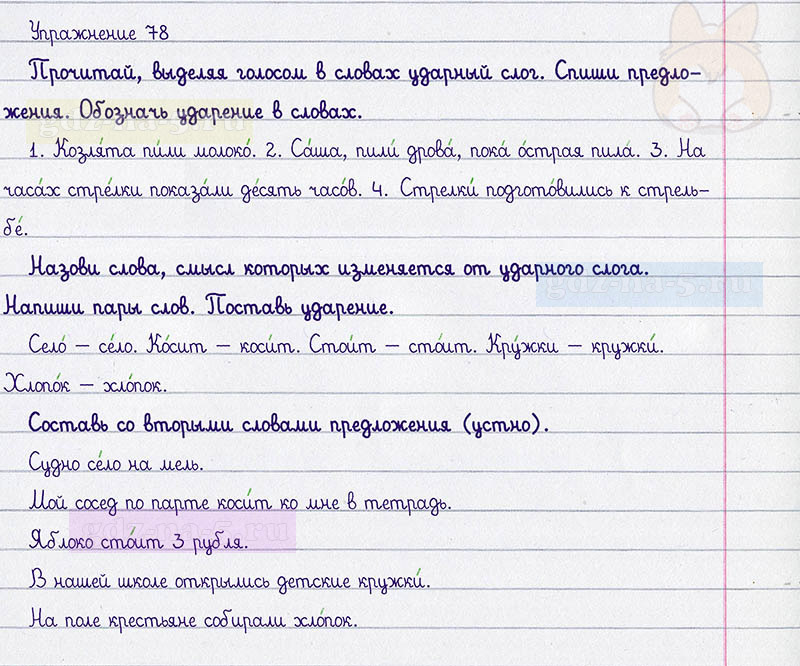 Упражнение 78
Прочитай, выделяя голосом в словах ударный слог. Спиши предло-
жения. Обозначь ударение в словах.
gdz-na-5.ru
1. Козля́та пи́ли молоко́. 2. Са́ша, пили́ дрова́, пока́ о́страя пила́. 3. На
часа́х стре́лки показа́ли де́сять часо́в. 4. Стрелки́ подгото́вились к стрель-
бе́.
Назови слова, смысл которых изменяется от ударного слога.
gdz-na-5.ru
Напиши пары слов. Поставь ударение.
Село́ – се́ло. Ко́сит – коси́т. Стои́т – сто́ит. Кру́жки – кружки́.
Хлопо́к – хло́пок.
Составь со вторыми словами предложения (устно).
Судно се́ло на мель.
Мой сосед по парте коси́т ко мне в тетрадь.
gdz-na-5.ru
Яблоко сто́ит 3 рубля.
В нашей школе открылись детские кружки́.
На поле крестьяне собирали хло́пок.